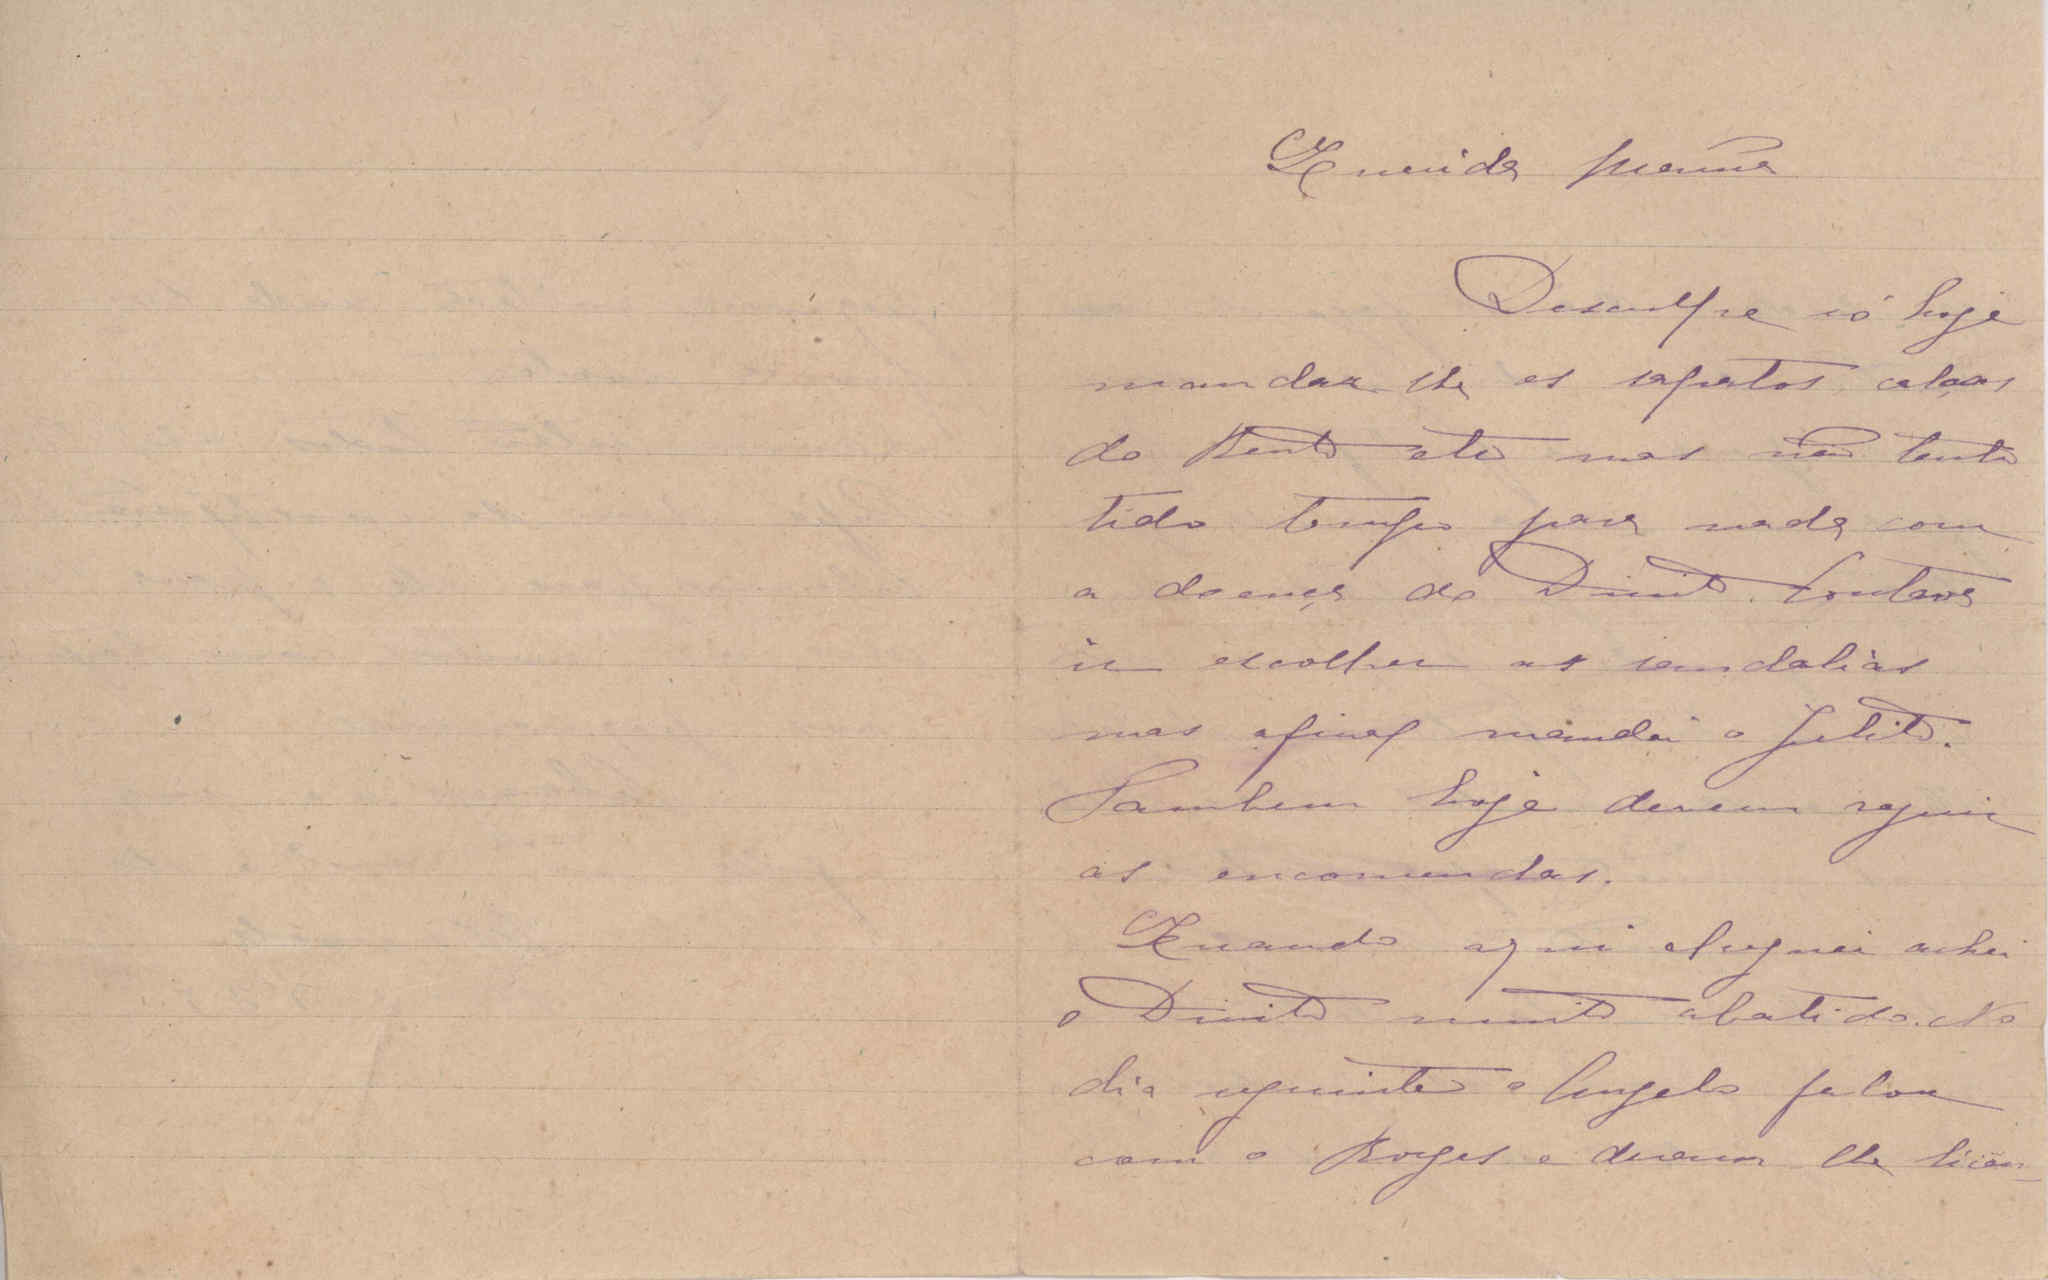 Querida mamã
Desculpe só hoje
mandar lhe os sapatos, calças
do Bento etc mas não tenho
tido tempo para nada com
a doença do Diniz.
ir escolher as sandalias
mas afinal mandei o Julito.
Tambem hoje devem seguir
as encomendas.
Quando aqui cheguei achei
o muito abatido. No
dia seguinte o Angelo falou
com o Borges e deram lhe licen